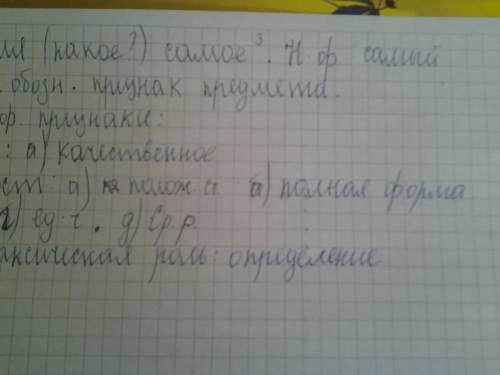 (какое?) самое³. Н.ф самый
обозн. признак предмета.
признаки:
: а) качественное
ст: а) полож ст. б) полная форма
г) ед.ч. д) Ср.р.
аксическая роль: определение